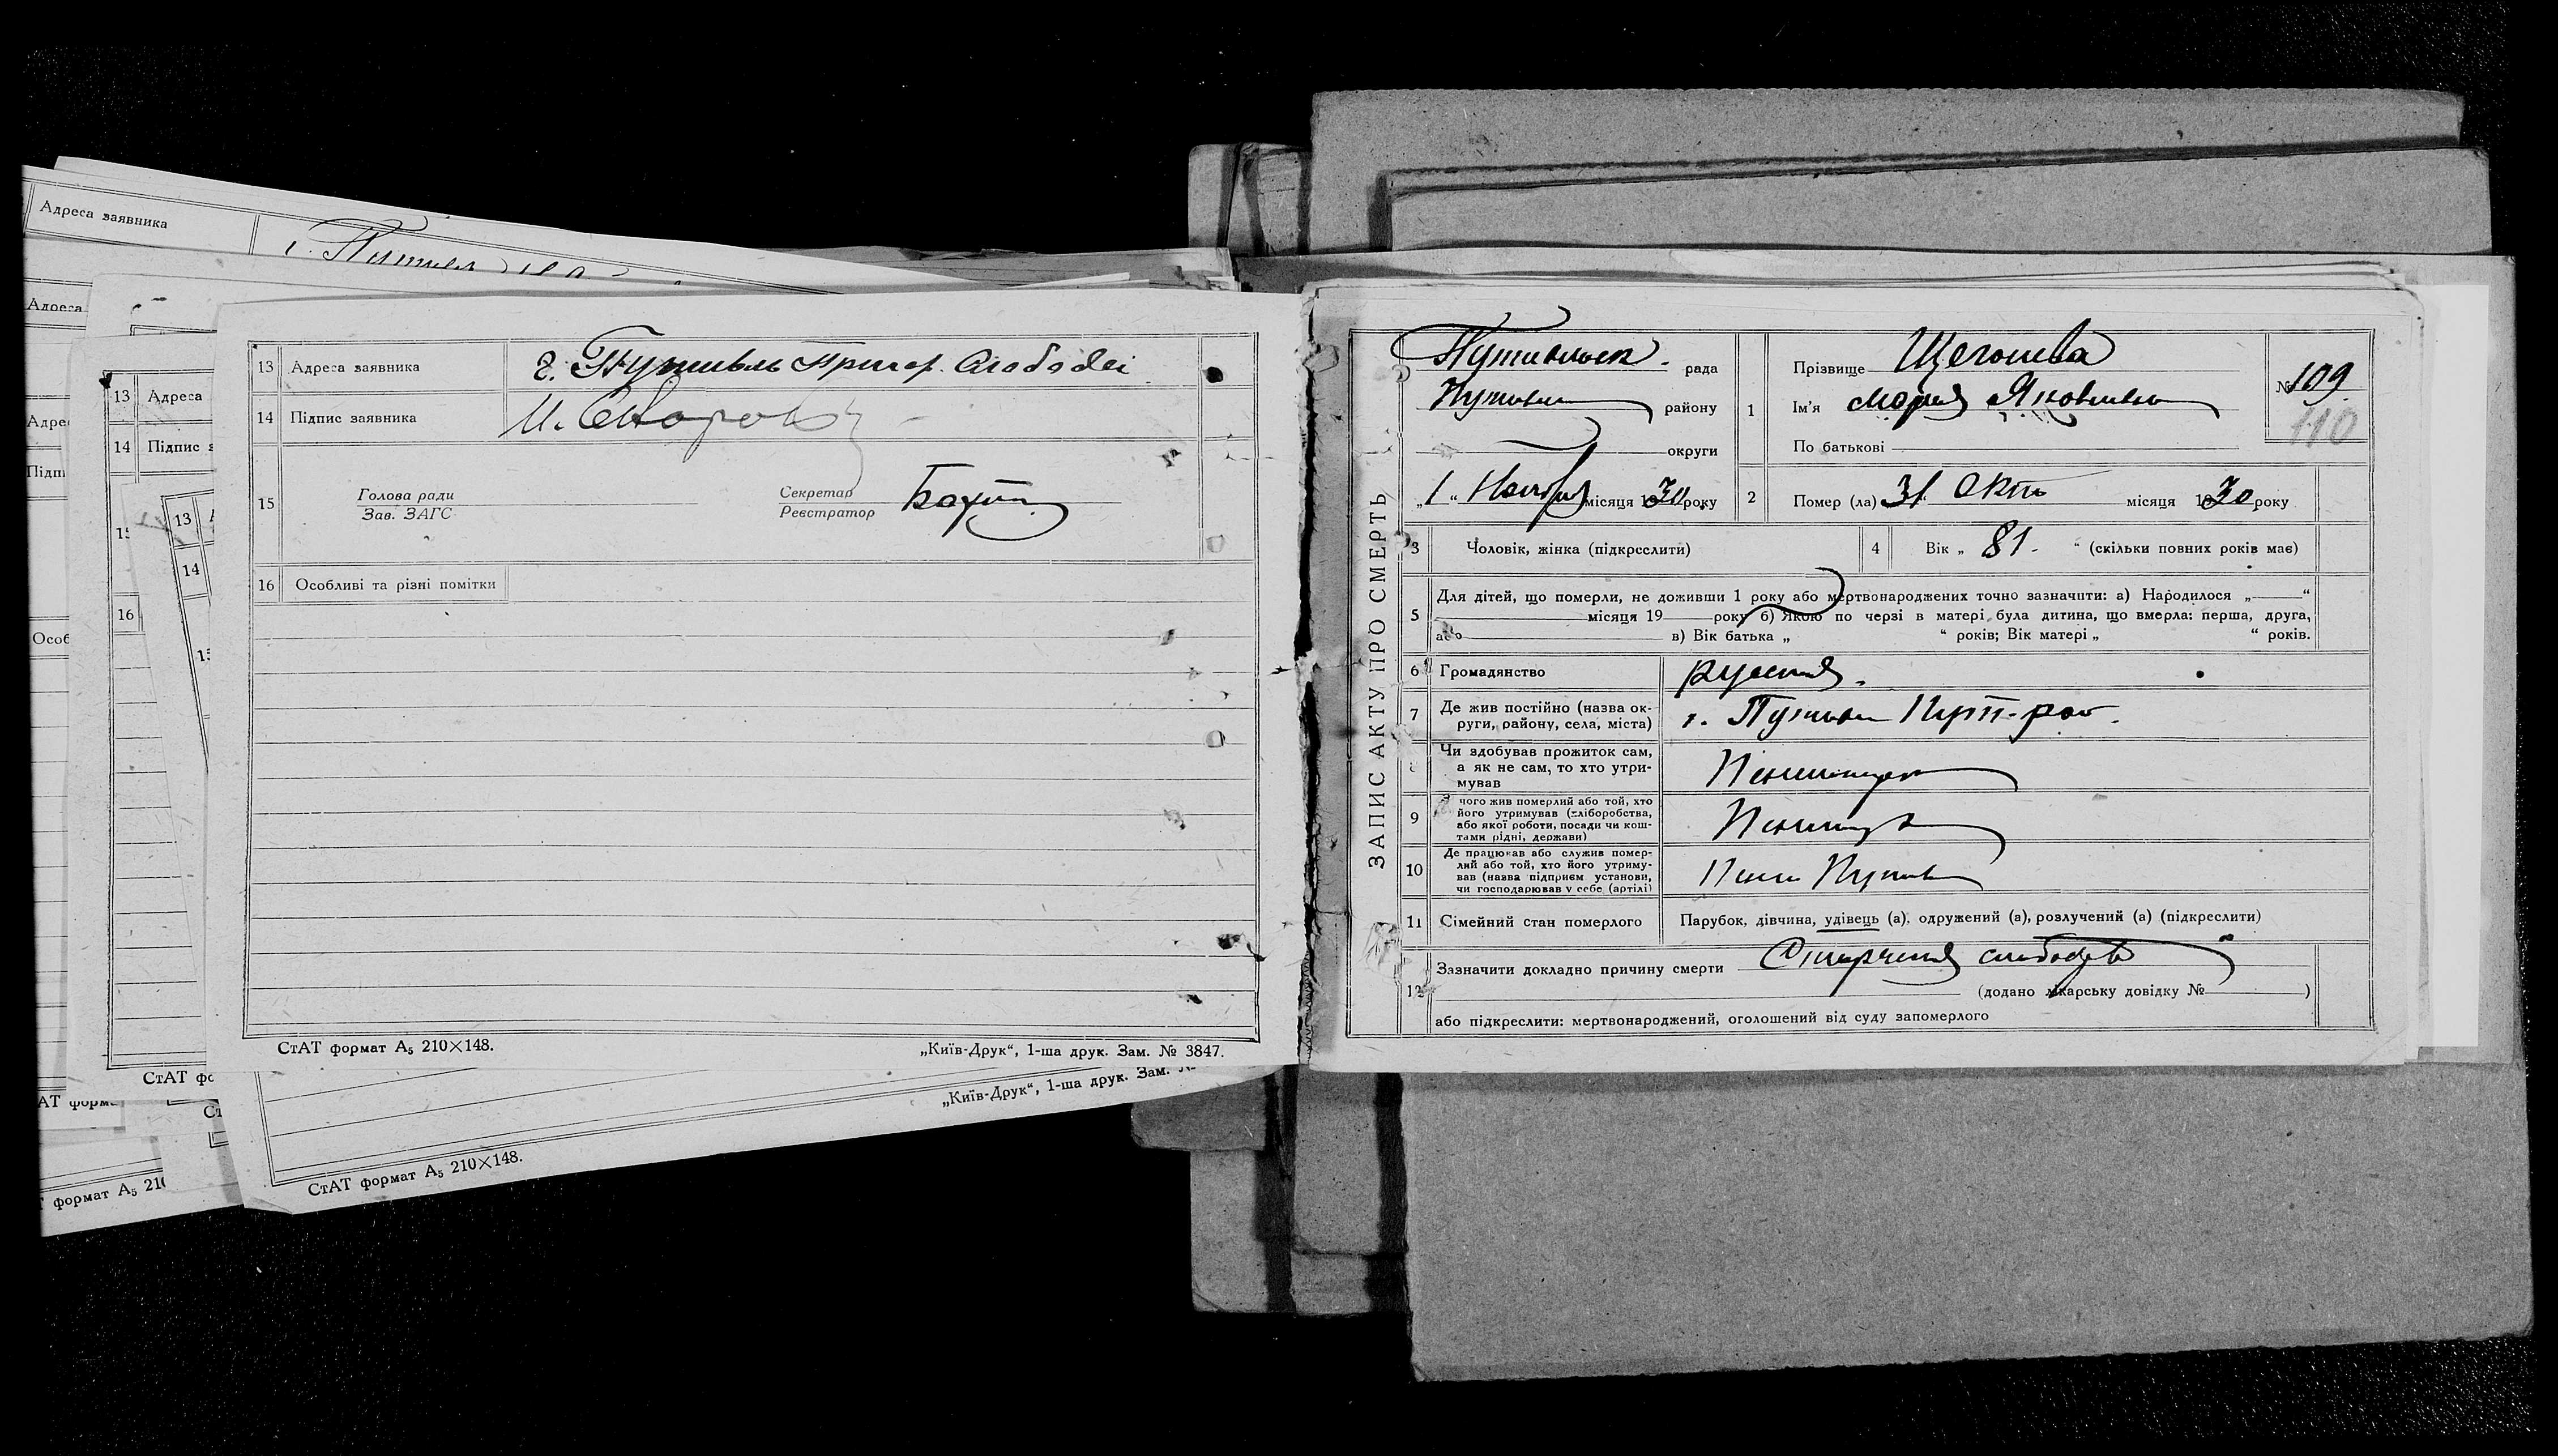 Адреса заявника
г.
Адреса
13 Адреса
14 Підпис
13
14
16
Особ
13 Адреса заявника г. Путивль Пригор. Слободей
14 Підпис заявника И.
15 Голова ради
Зав. ЗАГС
Секретар
Реєстратор
16 Особливі та різні помітки
СтАТ формат А₅ 210×148.
„Київ-Друк“, 1-ша друк. Зам. № 3847.
СтАТ
формат А₅
„Київ-Друк“, 1-ша друк. Зам.
СтАТ формат А₅ 210×148.
ЗАПИС АКТУ ПРО СМЕРТЬ
Путивльск. рада
Путивль району
округи
„1“ Ноября місяця 1930 року
1 Прізвище Щеголева
Ім'я Мария Яковлевна
По батькові
№ 109
110
2 Помер (ла) 31 Окт. місяця 1930 року
3 Чоловік, жінка (підкреслити)
4 Вік „ 81. “ (скільки повних років має)
5 Для дітей, що померли, не доживши 1 року або мертвонароджених точно зазначити: а) Народилося „ “
місяця 19 року б) Якою по черзі в матері була дитина, що вмерла: перша, друга,
або в) Вік батька „ “ років; Вік матері „ “ років.
6 Громадянство русская.
7 Де жив постійно (назва ок-
руги, району, села, міста)
г. Путивль Пут. рай.
Чи здобував прожиток сам,
а як не сам, то хто утри-
мував
Пенсионерка
9 З чого жив померлий або той, хто
його утримував (хліборобства,
або якої роботи, посади чи кош-
тами рідні, держави)
10 Де працював або служив помер-
лий або той, хто його утриму-
вав (назва підприєм установи,
чи господарював у себе (артілі)
11 Сімейний стан померлого Парубок, дівчина, удівець (а), одружений (а), розлучений (а) (підкреслити)
12 Зазначити докладно причину смерти Старческая слабость
(додано лікарську довідку № )
або підкреслити: мертвонароджений, оголошений від суду запомерлого